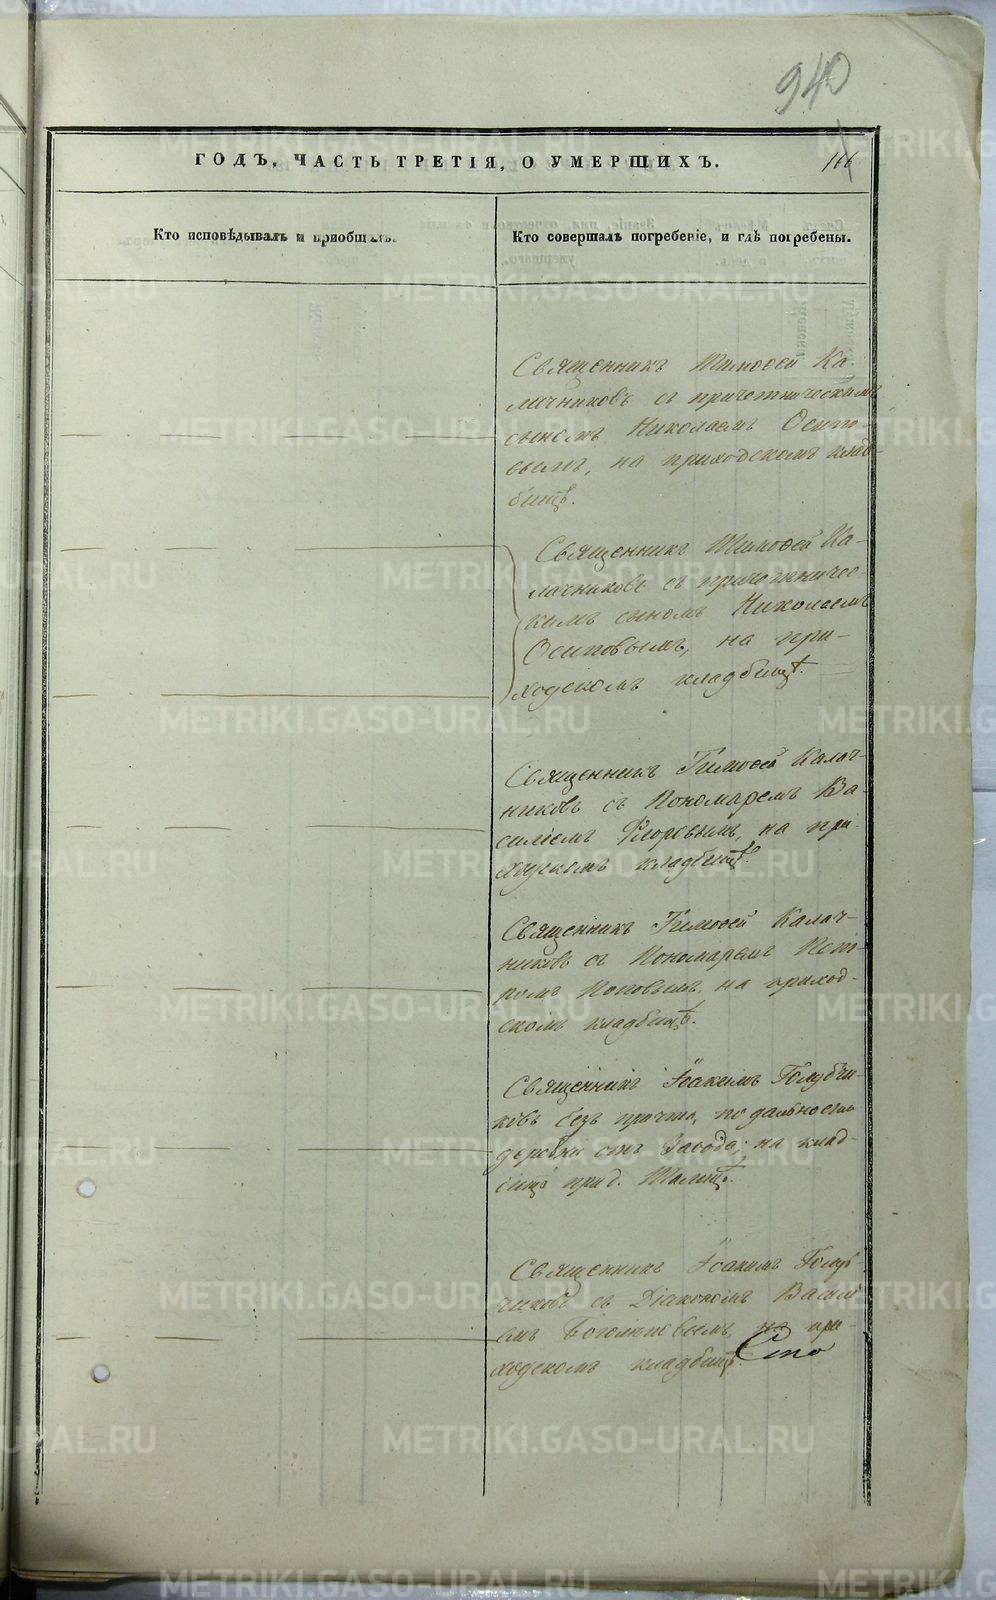 940
ГОДЪ, ЧАСТЬ ТРЕТІЯ, О УМЕРШИХЪ.
166
Кто исповѣдывалъ и пріобщалъ.
Кто совершалъ погребеніе, и гдѣ погребены.
Священникъ Тимоѳей Ка-
лачниковъ съ причетническимъ
сыномъ Николаемъ Осипо-
вымъ, на приходскомъ клад-
бищѣ.
Священникъ Тимоѳей Ка-
лачниковъ съ причетничес-
кимъ сыномъ Николаемъ
Осиповымъ, на при-
ходскомъ кладбищѣ.
Священникъ Тимоѳей Калач-
никовъ съ Пономаремъ Ва-
силіемъ Флоровымъ, на при-
ходскомъ кладбищѣ.
Священникъ Тимоѳей Калач-
никовъ съ Пономаремъ Пет-
ромъ Поповымъ, на приход-
скомъ кладбищѣ.
Священникъ Іоакимъ Голубчи-
ковъ безъ причта, по дальности
деревни отъ Завода; на клад-
бищѣ при д.
Священникъ Іоакимъ Голуб-
чиковъ съ Діакономъ Васил-
емъ на при-
ходскомъ кладбищѣ.
Сто
METRIKI.GASO-URAL.RU